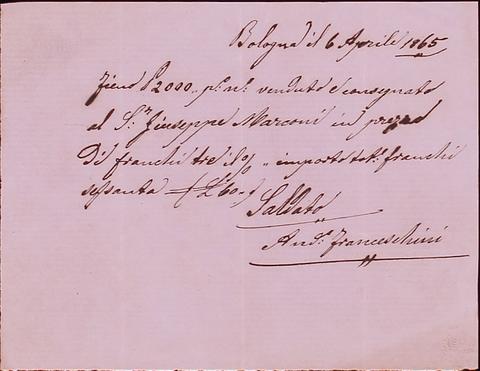 Bologna il 6 Aprile 1865
Fieno £ 2000 .. p.º n.º venduto e consegnato
al S.r Giuseppe Marconi in prezzo
di franchi tre il % .. importo tot.e franchi
sessanta £ 60 ..
Saldato
And.a Franceschini